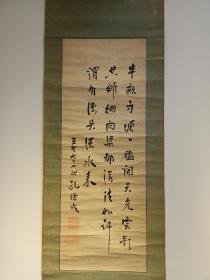 半畝方塘一鑑開天光雲影
共徘徊問渠那得清如許
謂有源頭活水來
孔德成